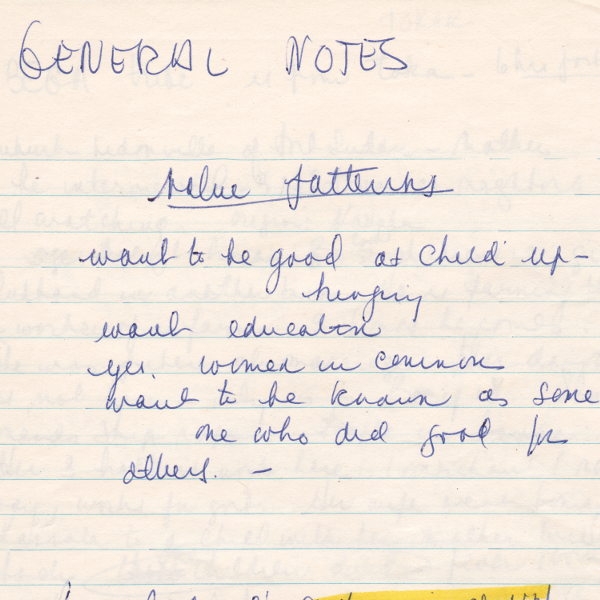 GENERAL NOTES
Value Patterns
want to be good at child up-
bringing
want education
yes. women in common
want to be known as some
one who did good for
others. –